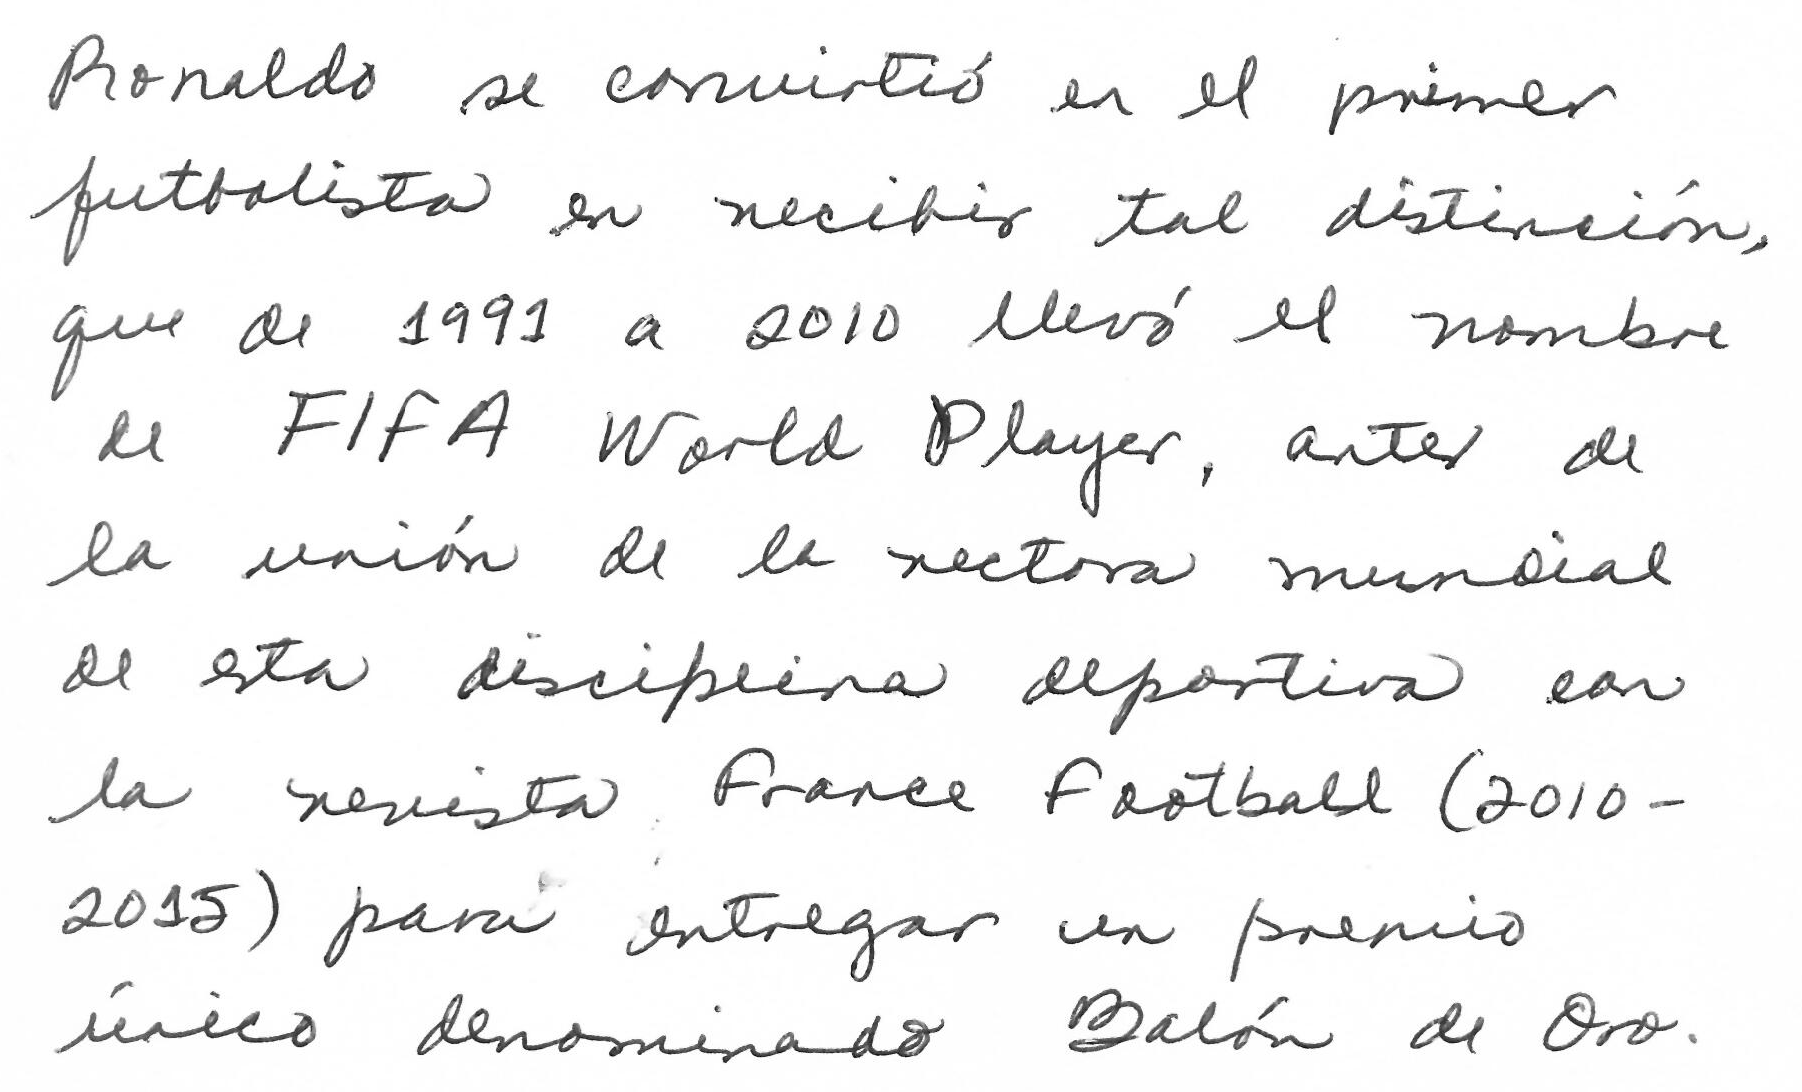 Ronaldo se convirtió en el primer
futbolista en recibir tal distinción,
que de 1991 a 2010 llevó el nombre
de FIFA World Player, antes de
la unión de la rectora mundial
de esta disciplina deportiva con
la revista France Football (2010-
2015) para entregar un premio
único denominado Balón de Oro.